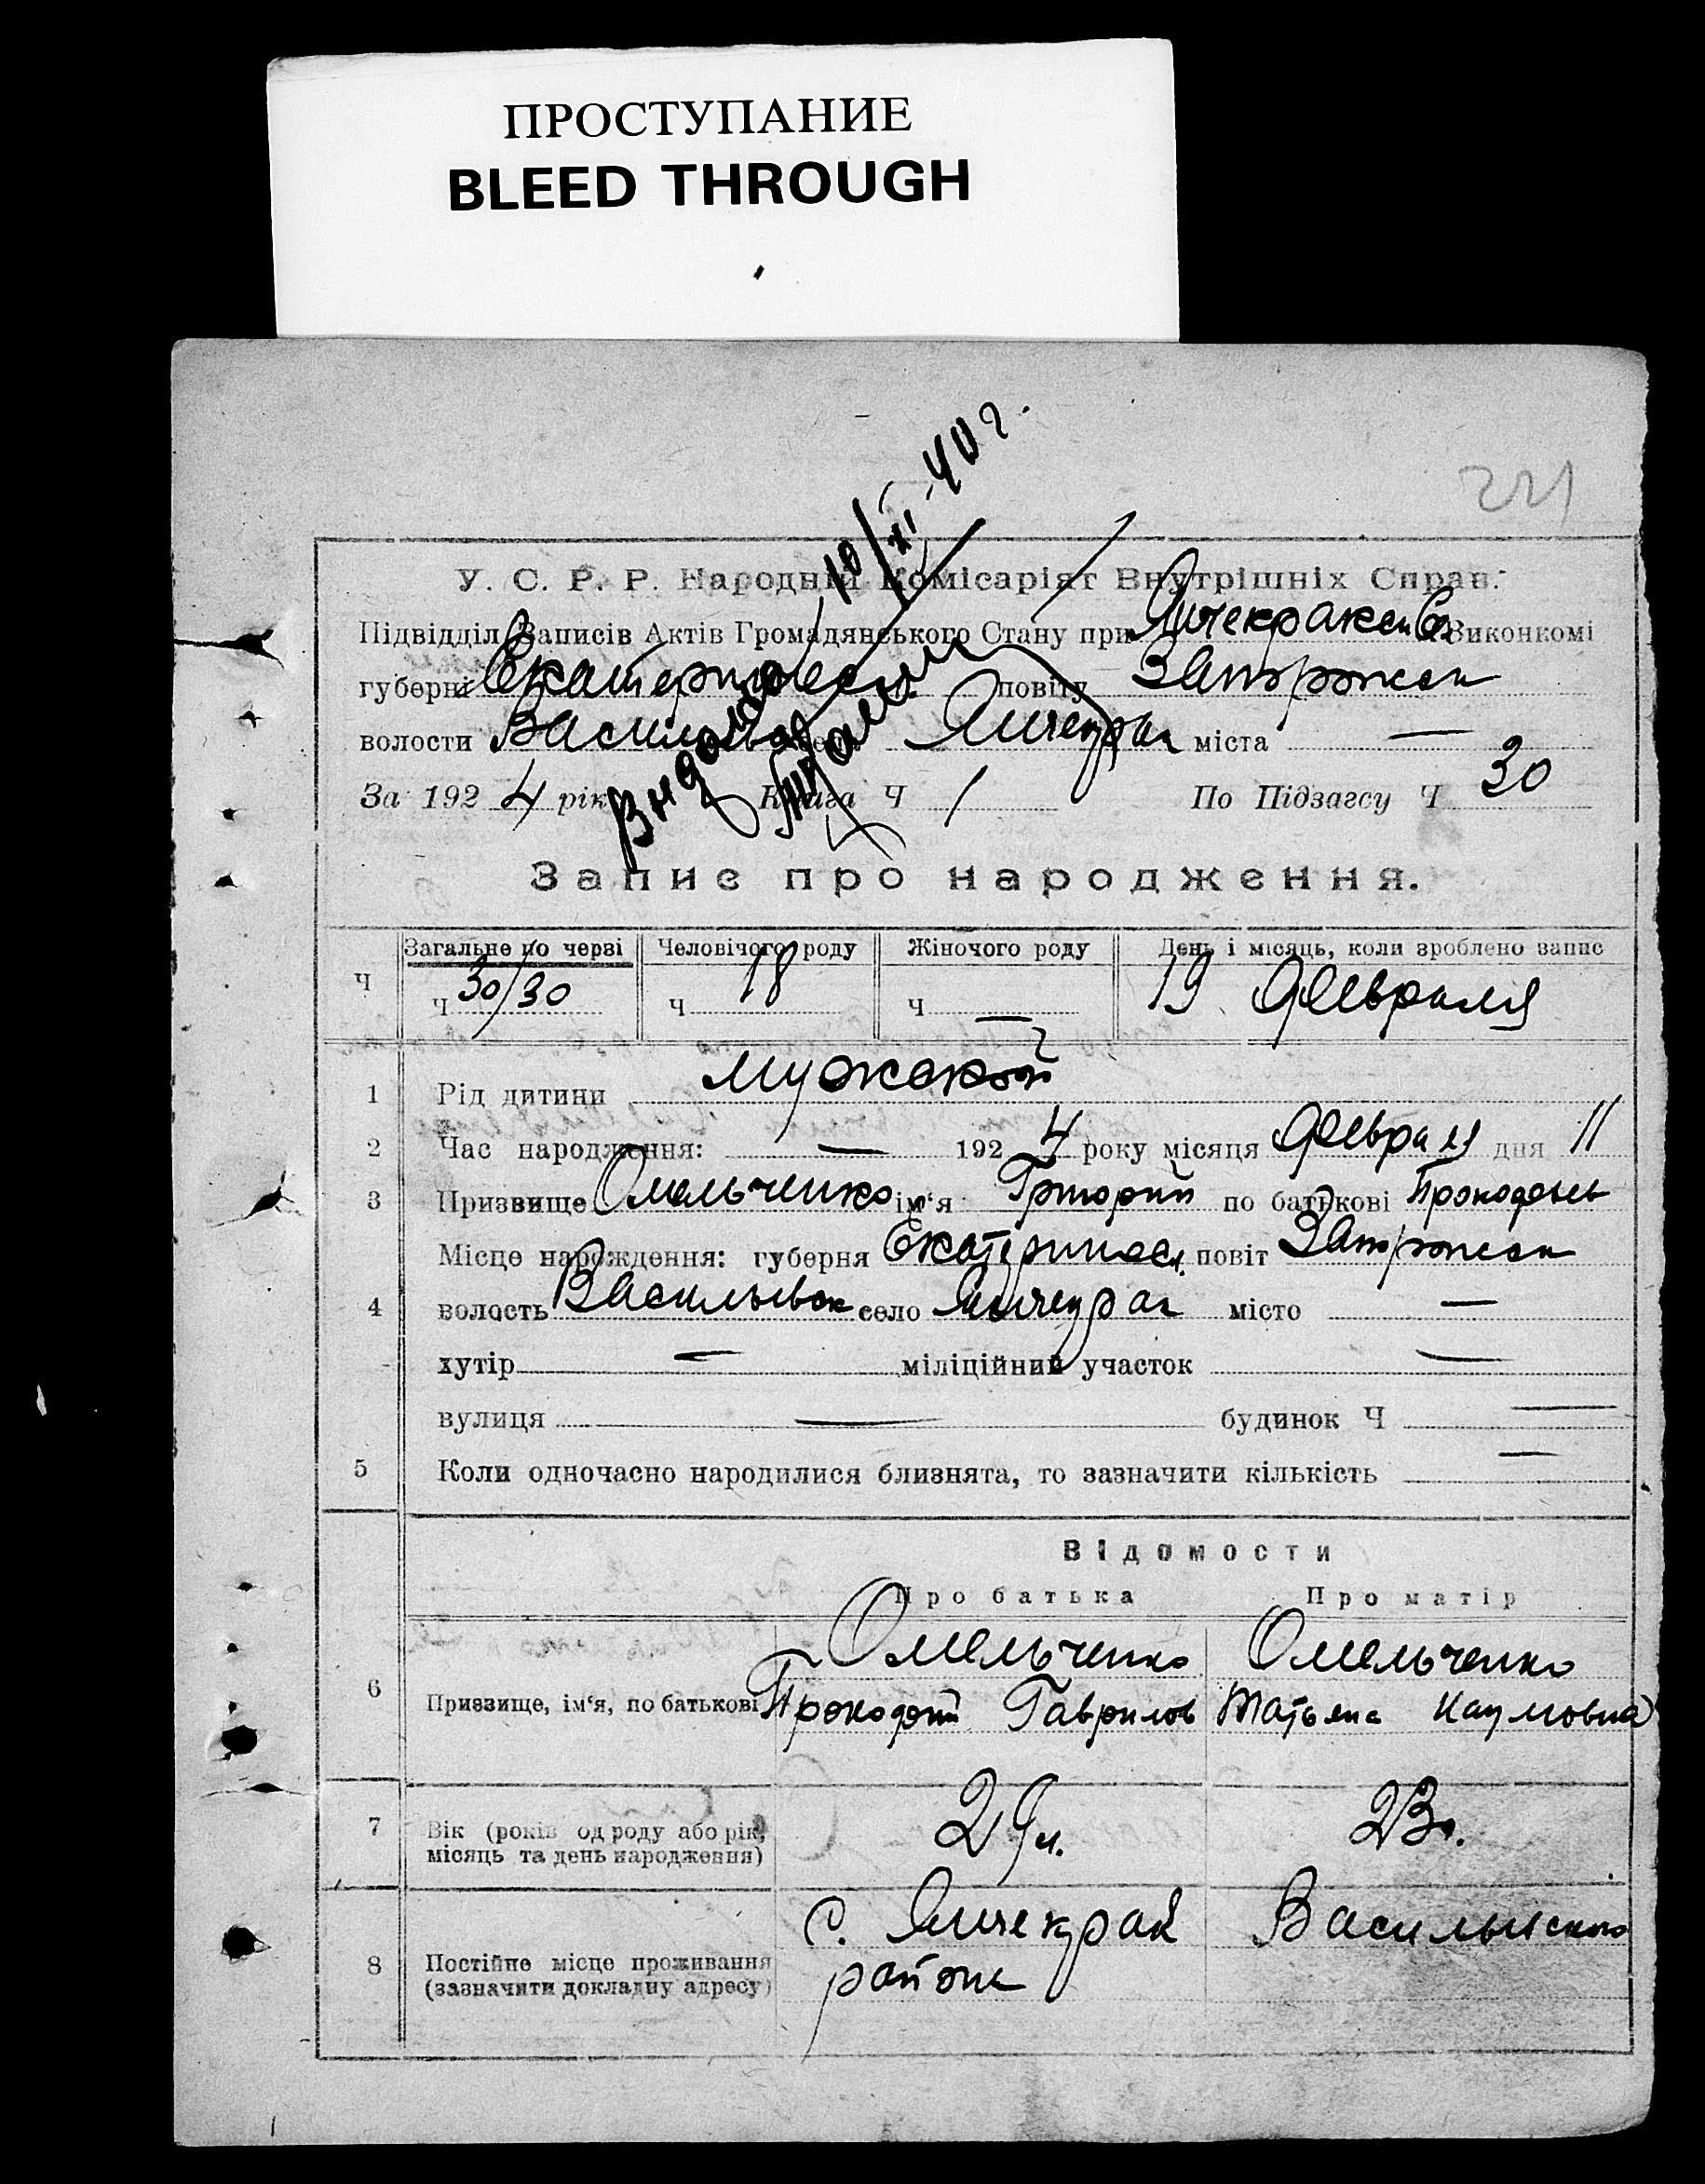 ПРОСТУПАНИЕ
BLEED THROUGH
221
10/XI-40 г.
У. С. Р. Р. Народній Комісаріят Внутрішніх Справ.
Підвідділ Записів Актів Громадянського Стану при Янчекракск. С. Виконкомі
губерні Екатериносл. повіту Запорожск
волости Васильевск Янчекрак міста —
За 1924 рік Книга Ч 1 По Підзагсу Ч 30
Запис про народження.
Загальне по черзі Человічого роду Жіночого роду День і місяць, коли зроблено запис
Ч Ч 30/30 Ч 18 Ч — 19 Февраля
1 Рід дитини мужской
2 Час народження: — 1924 року місяця Февраля дня 11
3 Призвище Омельченко ім'я Григорий по батькові Прокофьев
Місце народження: губерня Екатериносл. повіт Запорожск
4 волость Васильевск село Янчекрак місто —
хутір — міліційний участок —
вулиця — будинок Ч —
5 Коли одночасно народилися близнята, то зазначити кількість —
Відомости
Про батька Про матір
Омельченко Омельченко
6 Призвище, ім'я, по батькові Прокофий Гаврилов Татьяна Наумовна
7 Вік (років од роду або рік, 29 л. 23 л.
місяць та день народження)
с. Янчекрак Васильевского
8 Постійне місце проживання района
(зазначити докладну адресу)